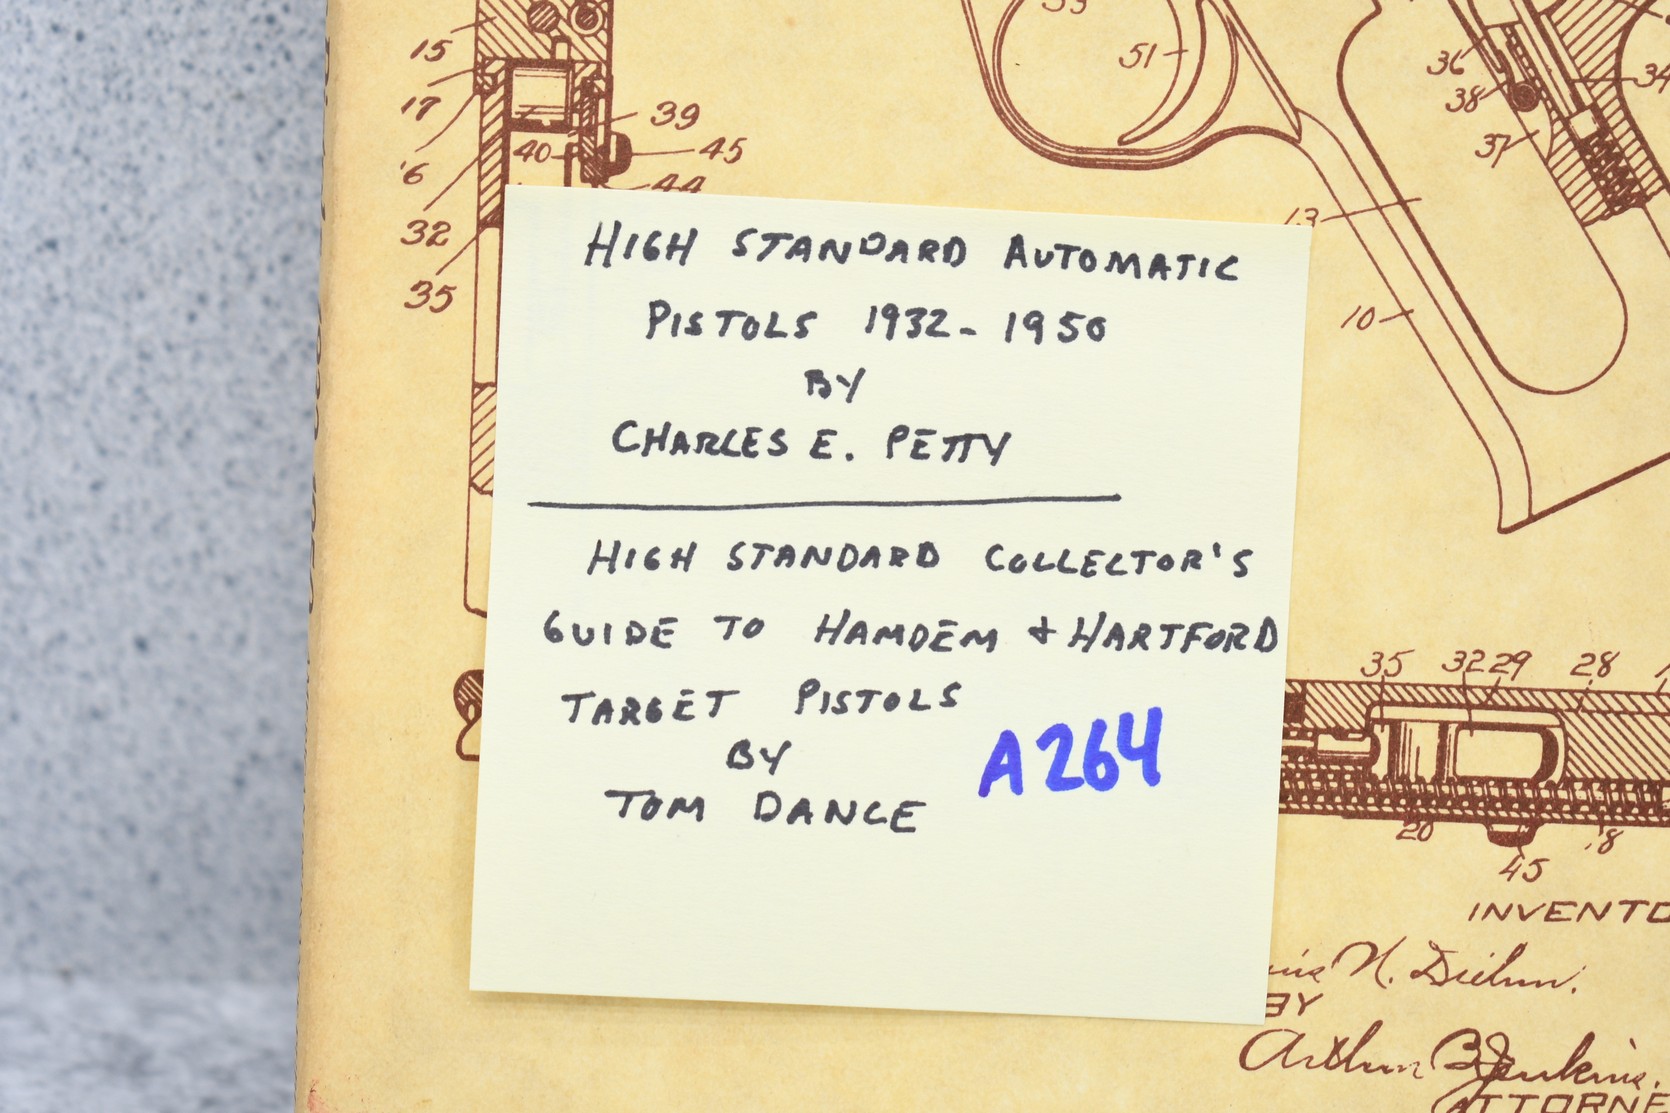 15
17
32
35
39
40
45
44
51
36
38
37
34
13
10
HIGH STANDARD AUTOMATIC
PISTOLS 1932-1950
BY
CHARLES E. PETTY
HIGH STANDARD COLLECTOR'S
GUIDE TO HAMDEM & HARTFORD
TARGET PISTOLS
BY
TOM DANCE
A264
35 32 29 28
20
45
INVENTO
N. Diehm.
BY
Arthur B. Jenkins.
ATTORNE